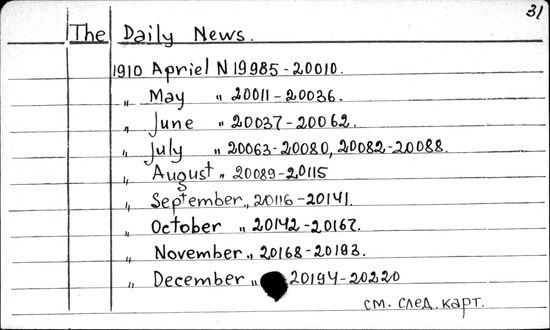 31
The Daily News.
1910 Apriel N 19985-20010.
„ May „ 20011-20036.
„ June „ 20037-20062.
„ July „ 20063-20080, 20082-20088.
„ August „ 20089-20115
„ September „ 20116-20141.
„ October „ 20142-20167.
„ November „ 20168-20193.
„ December „ 20194-20220
см. след. карт.